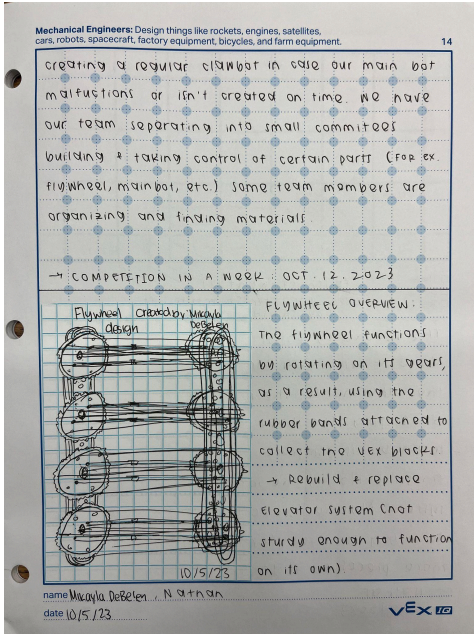 Mechanical Engineers: Design things like rockets, engines, satellites,
cars, robots, spacecraft, factory equipment, bicycles, and farm equipment.
14
creating a regular clawbot in case our main bot
malfuctions or isn't created on time. We have
our team seperating into small commitees
building & taking control of certain parts (FOR EX.
flywheel, main bot, etc.) some team members are
organizing and finding materials.
→ COMPETITION IN A WEEK: OCT. 12. 2023
Flywheel Created by Mikayla
design DeBelen
10/5/23
FLYWHEEL OVERVIEW:
The flywheel functions
by rotating on its gears,
as a result, using the
rubber bands attached to
collect the VEX blocks.
→ Rebuild & replace
Elevator system (not
sturdy enough to function
on its own).
name Mikayla DeBelen, Nathan
date 10/5/23
VEX IQ